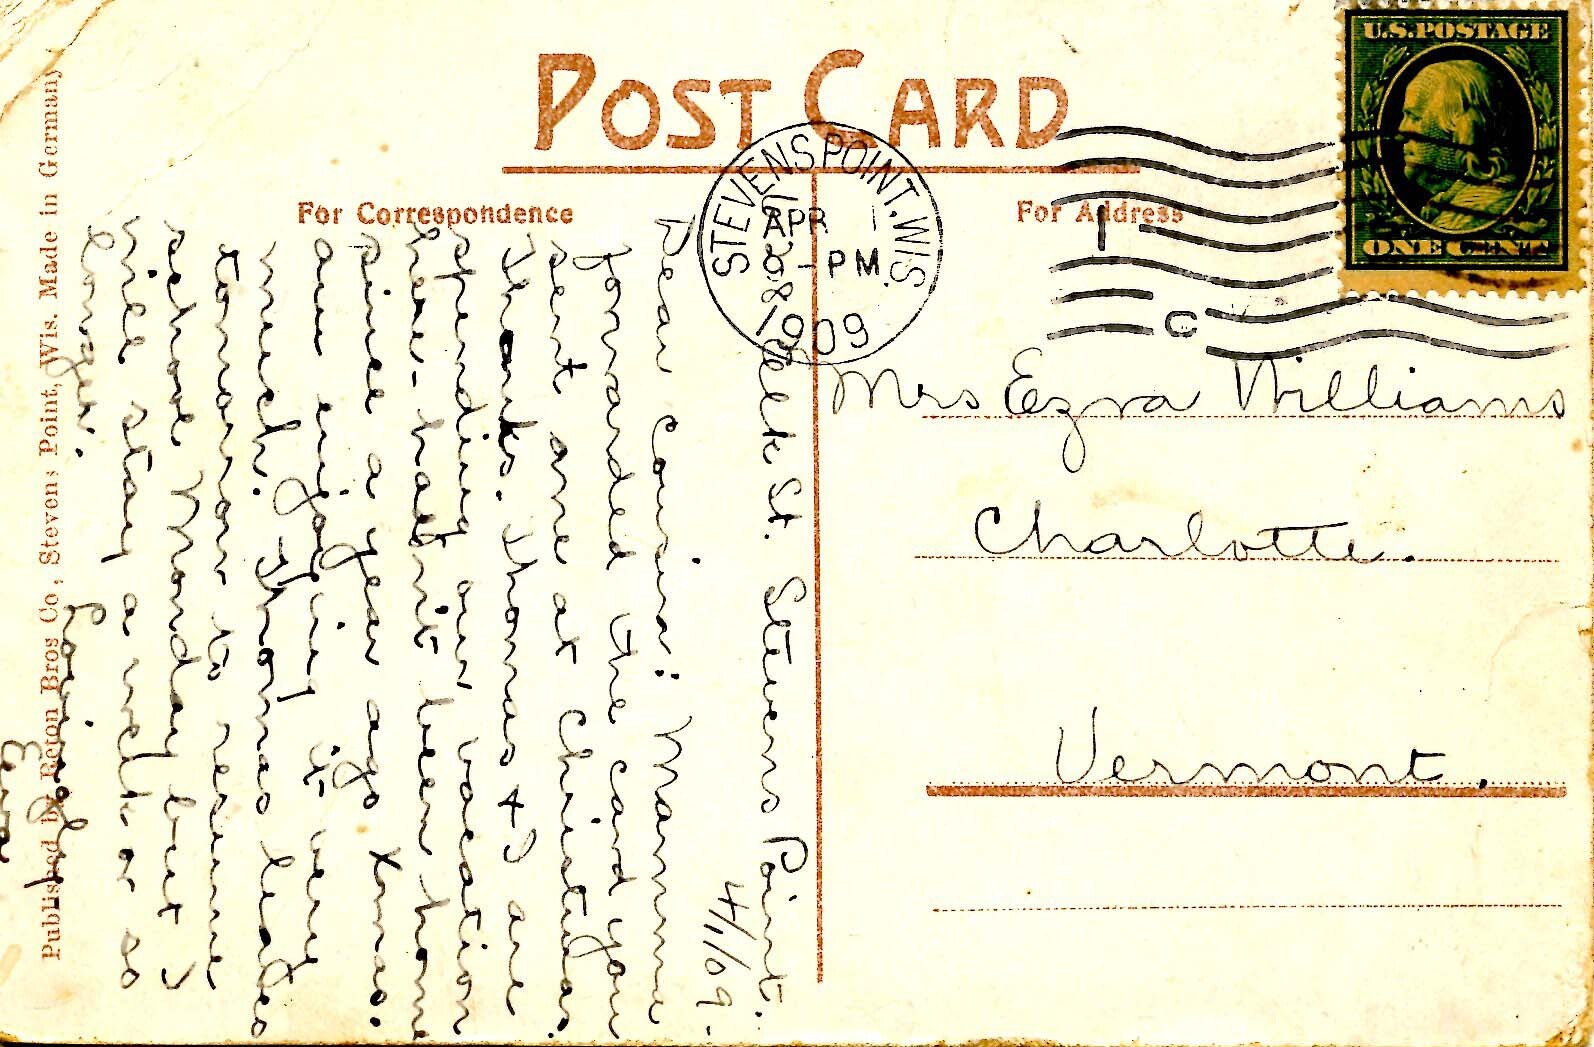 POST CARD
For Correspondence
For Address
U.S.POSTAGE
ONE CENT
STEVENS POINT, WIS.
APR 1
6 - PM
1909
C
Mrs Ezra Williams
Charlotte.
Vermont.
Clk St. Stevens Point.
4/1/09-
Dear Cousin: Mamma
forwarded the card you
sent me at Christmas.
Thanks. Thomas + I are
spending our vacation
here - hadn't been home
since a year ago Xmas.
am enjoying it very
much. Thomas leaves
tomorrow to resume
school Monday but I
will stay a week or so
longer.
Lovingly
Published by Reton Bros Co, Stevens Point, Wis. Made in Germany